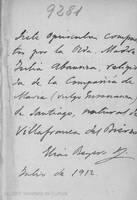 9281
Este opúsculo compues-
to por la Rda. Madre
Julia Abaunza, religio-
sa de la Compañía de
María (vulgo Enseñanza)
de Santiago, natural de
Villafranca del Bierzo
Elías Reyero S.J.
Julio de 1912